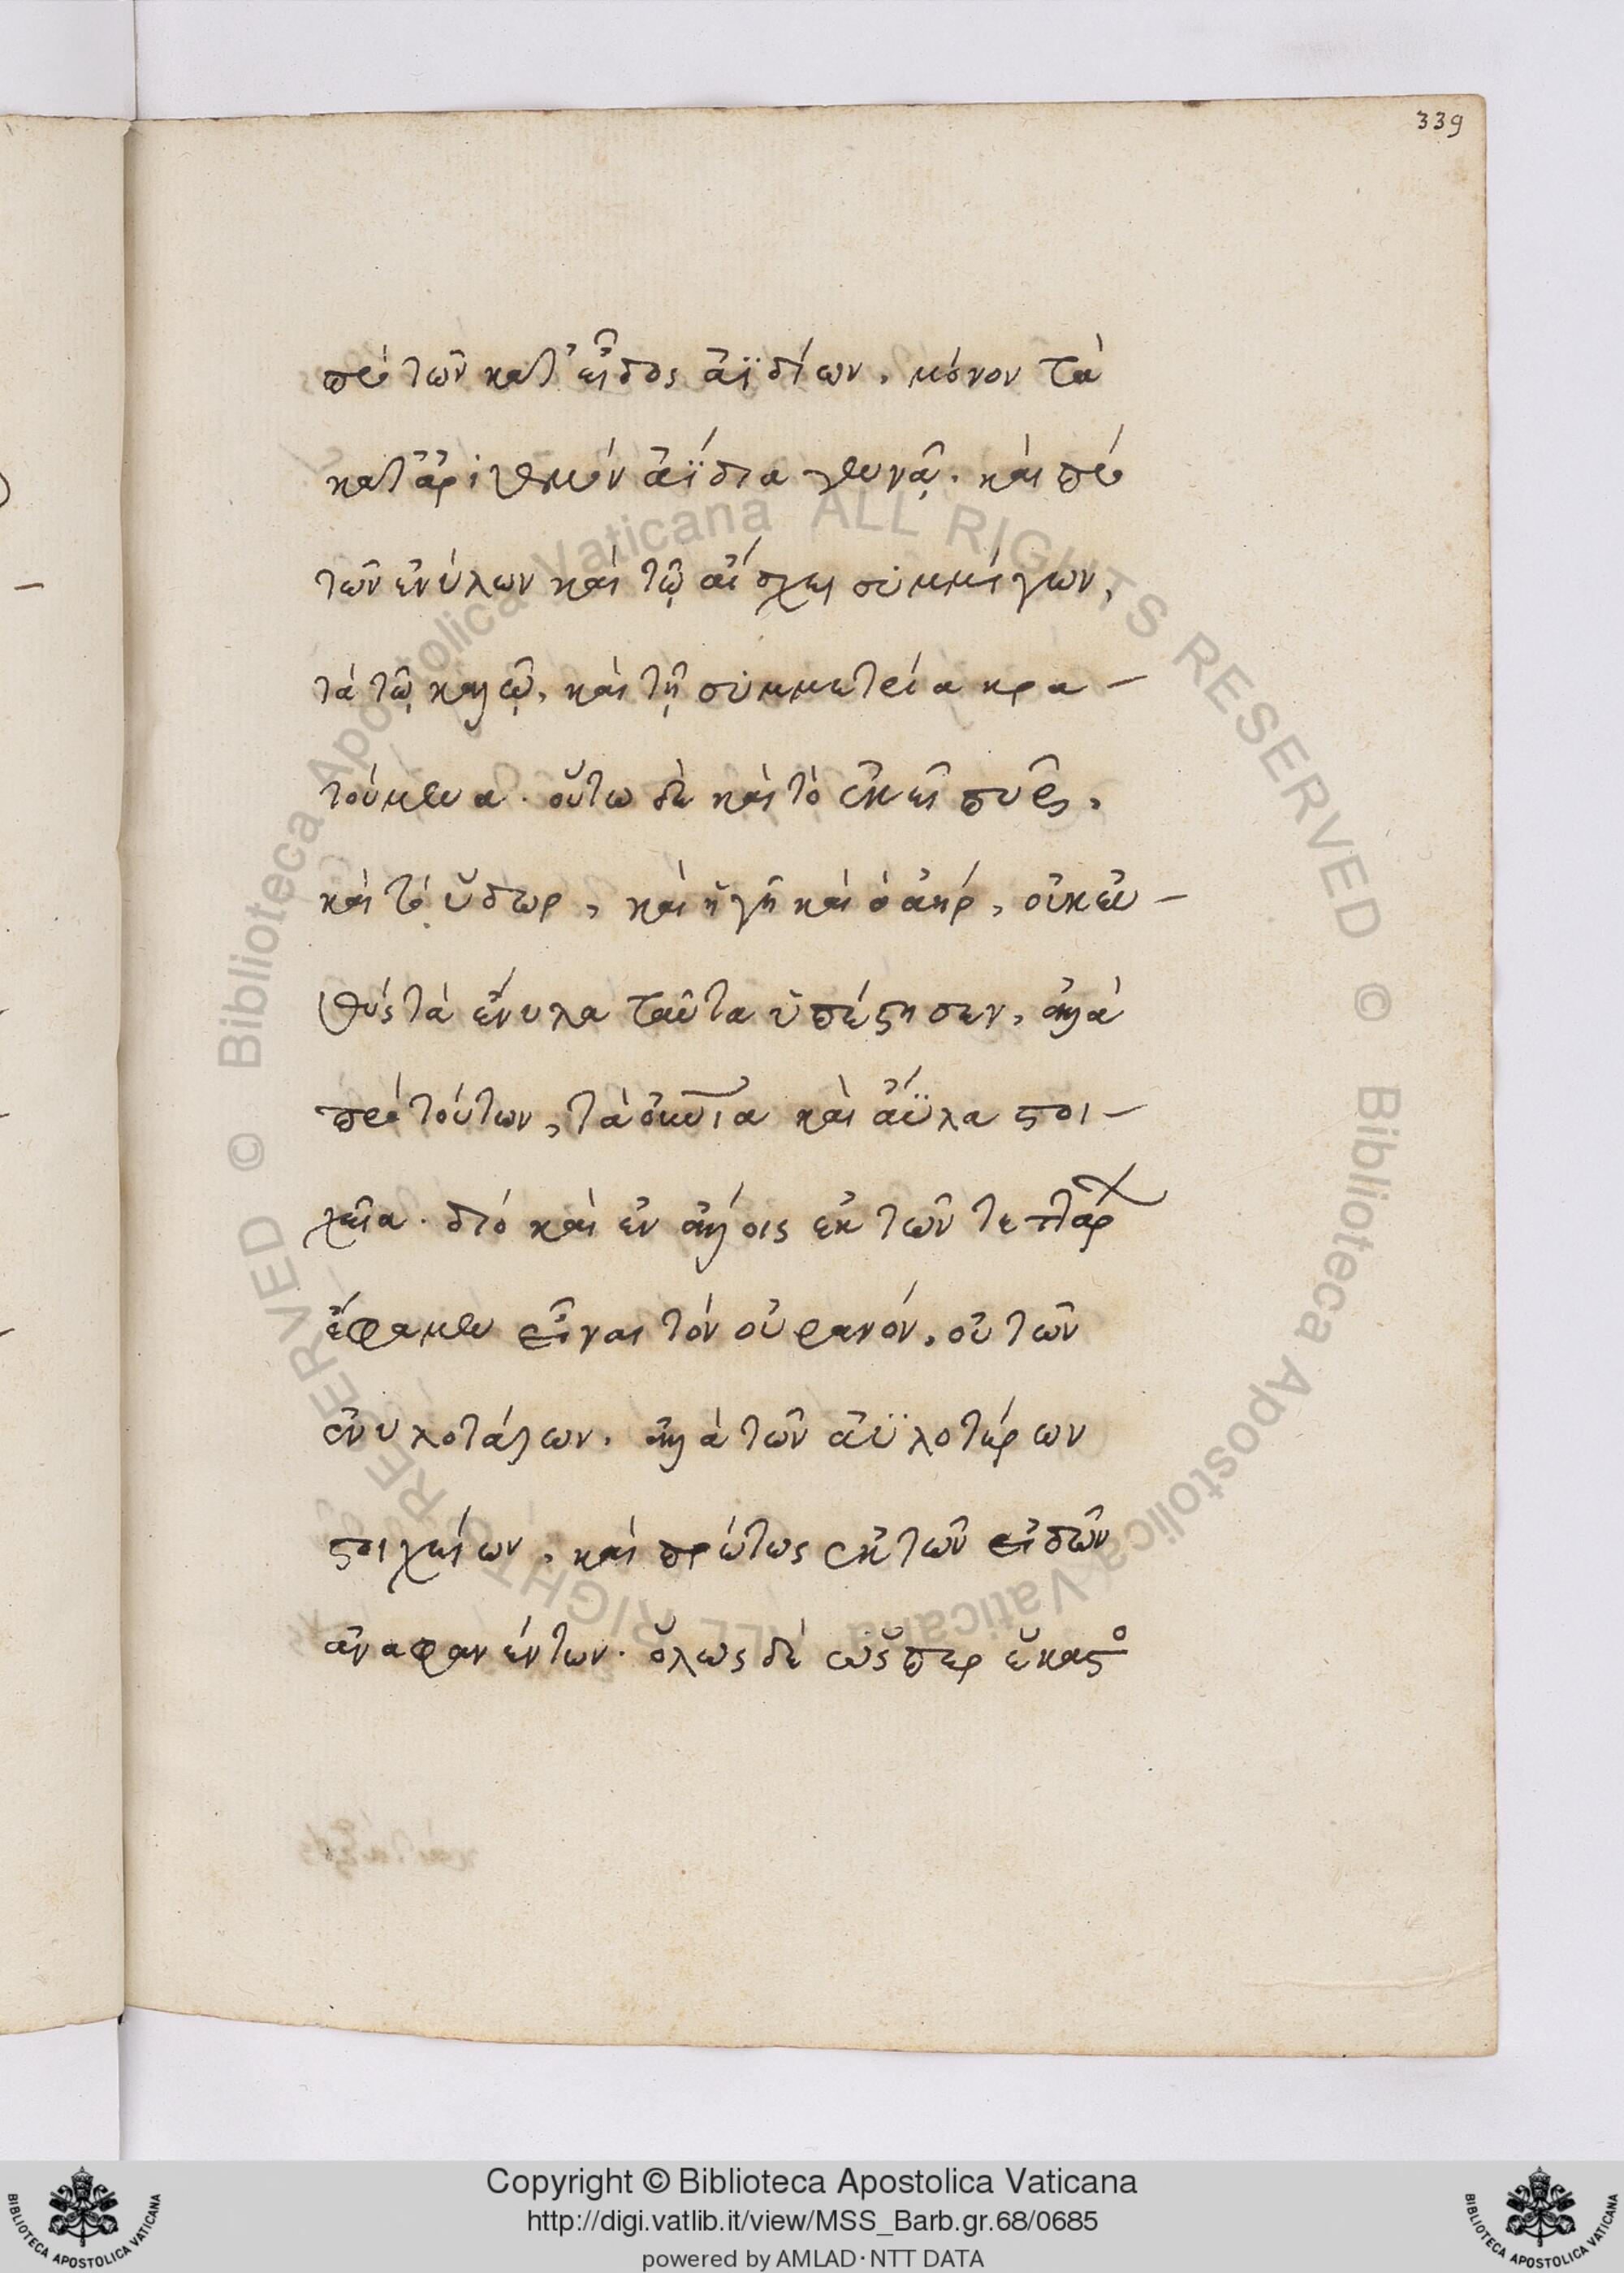 339
πρὸ τῶν κατ' εἶδος ἀϊδίων, μόνον τὰ
κατ' ἀριθμὸν ἀΐδια γεννᾷ. καὶ πρὸ
τῶν ἐνύλων καὶ τῷ αἴσχει συμμιγῶν,
τὰ τῷ καλῷ, καὶ τῇ συμμετρία κρα-
τούμενα. οὕτω δὲ καὶ τὸ ἐκεῖ πῦρ,
καὶ τὸ ὕδωρ, καὶ ἡ γῆ καὶ ὁ ἀὴρ, οὐκ εὐ-
θὺς τὰ ἔνυλα ταῦτα ὑπέστησεν, ἀλλὰ
πρὸ τούτων, τὰ οὐράνια καὶ ἄϋλα στοι-
χεῖα. διὸ καὶ ἐν ἄλλοις ἐκ τῶν τεττάρων
ἔφαμεν εἶναι τὸν οὐρανόν, οὐ τῶν
ἐνυλοτάτων, ἀλλὰ τῶν ἀϋλοτέρων
στοιχείων, καὶ πρώτως ἐκ τῶν εἰδῶν
ἀναφανέντων. ὅλως δὲ ὥσπερ ἕκαστο
Copyright © Biblioteca Apostolica Vaticana
http://digi.vatlib.it/view/MSS_Barb.gr.68/0685
powered by AMLAD·NTT DATA
BIBLIOTECA APOSTOLICA VATICANA
BIBLIOTECA APOSTOLICA VATICANA
© Biblioteca Apostolica Vaticana ALL RIGHTS RESERVED © Biblioteca Apostolica Vaticana ALL RIGHTS RESERVED